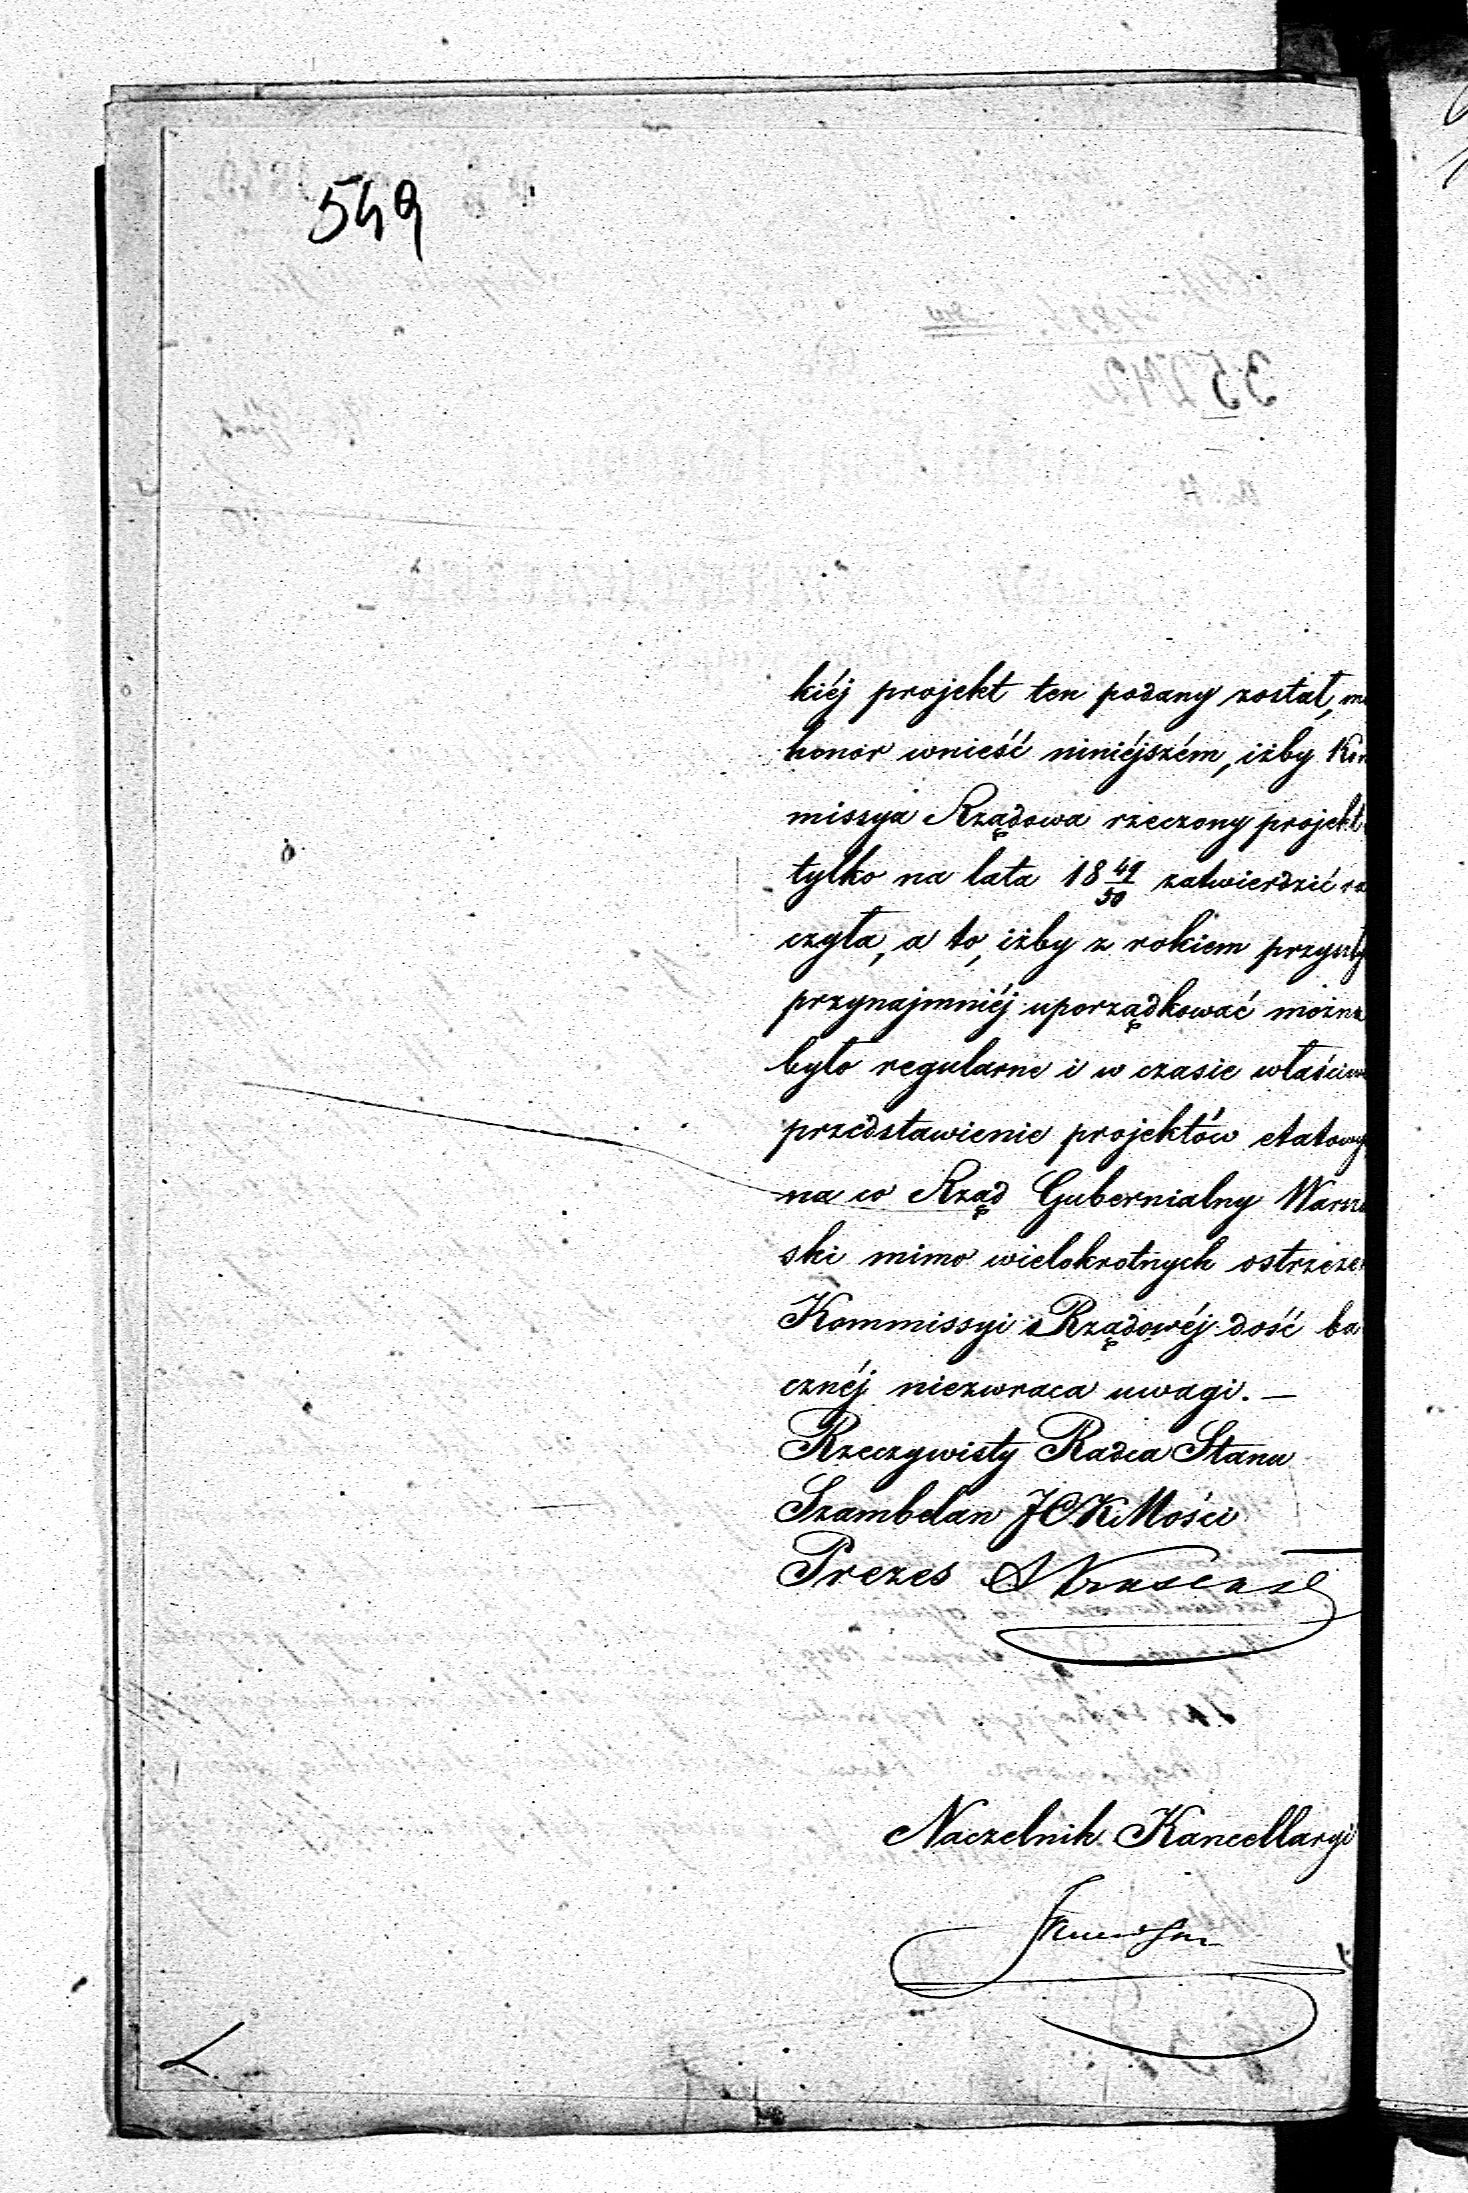 549
kiéj projekt ten podany został, m
honor wnieść niniéjszém, iżby Kom
missya Rządowa rzeczony projekt
tylko na lata 18 49/50 zatwierdzić ra
czyła, a to, iżby z rokiem przyszły
przynajmniéj uporządkować można
było regularne i w czasie właściw
przedstawienie projektów etatowy
na co Rząd Gubernialny Warsza
ski mimo wielokrotnych ostrzeże
Kommissyi Rządowéj dość ba
cznéj niezwraca uwagi. —
Rzeczywisty Radca Stanu
Szambelan JCKMości
Prezes
Naczelnik Kancellaryi